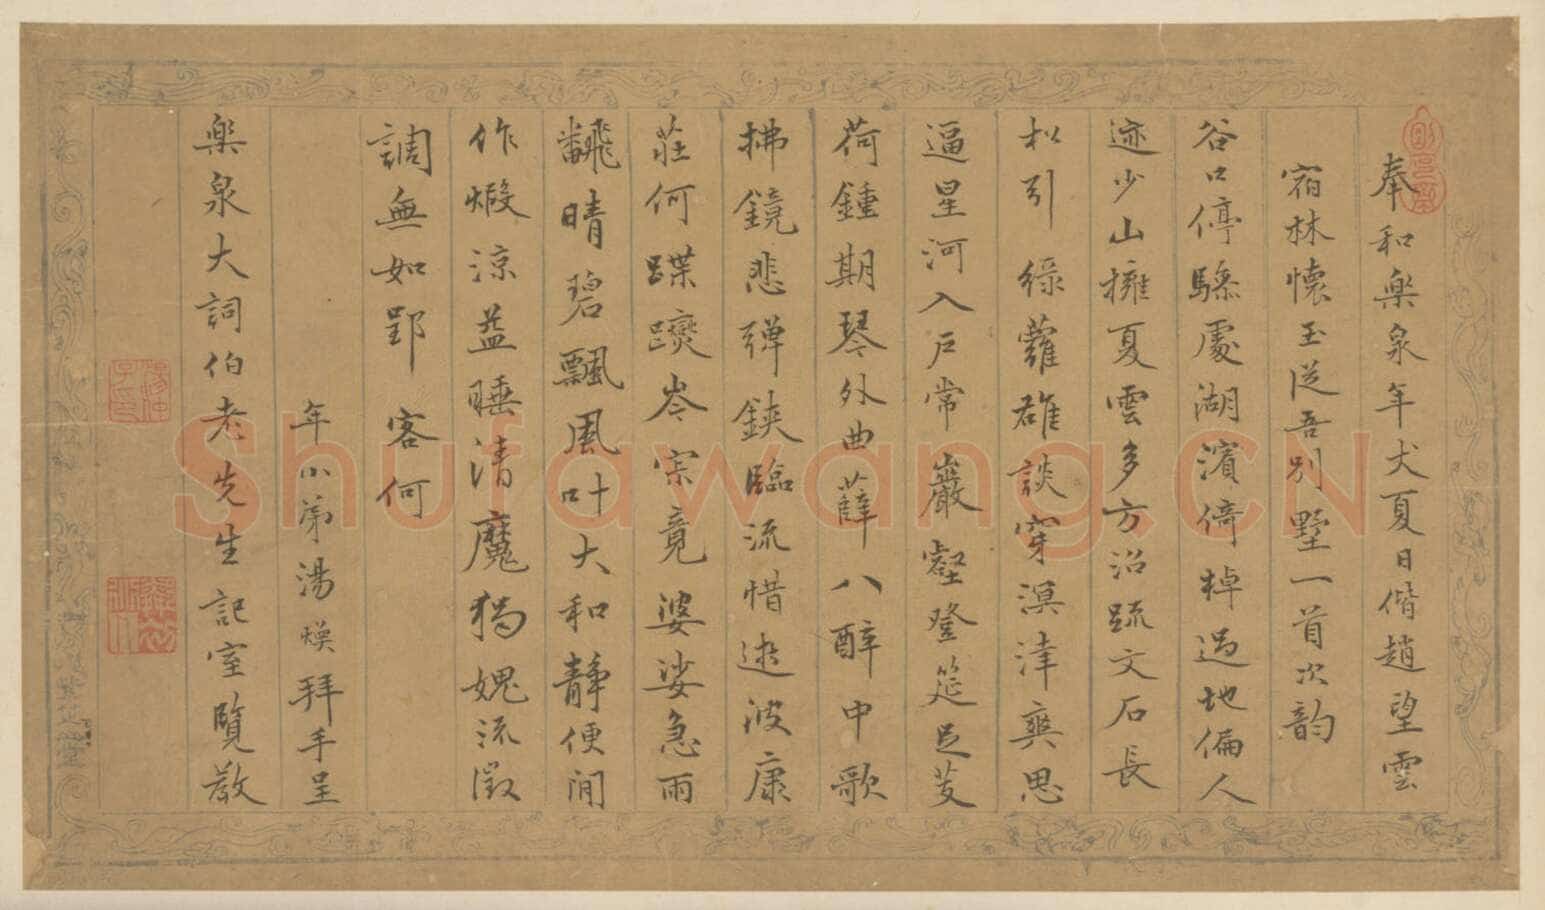 奉和樂泉年丈夏日偕趙望雲
宿林懷玉從吾別墅一首次韵
谷口停驂處湖濱倚棹過地偏人
迹少山擁夏雲多方沼疏文石長
松引綠蘿雄談穿溟涬爽思
逼星河入戶常巖壑登筵足芰
荷鍾期琴外曲薛八醉中歌
拂鏡悲彈鋏臨流惜逝波康
莊何蹀躞岑寂竟婆娑急雨
飜晴碧飄風叶大和靜便閒
作煅涼益睡清魔猶媿流徵
調無如郢客何
年小弟湯煥拜手呈
樂泉大詞伯老先生記室覽教
Shufawang.CN